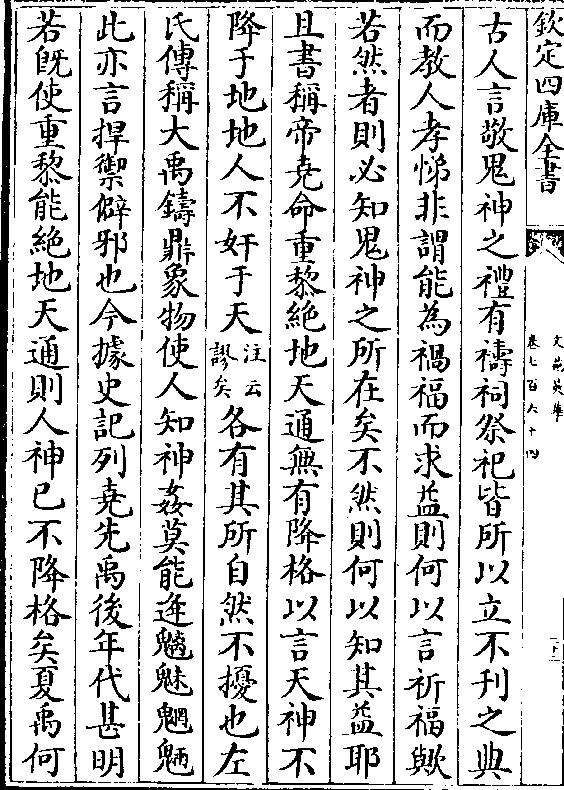 欽定四庫全書
文苑英華
卷七百六十四
二十二
古人言敬鬼神之禮有禱祠祭祀皆所以立不刊之典
而教人孝悌非謂能為禍福而求益則何以言祈福歟
若然者則必知鬼神之所在矣不然則何以知其益耶
且書稱帝堯命重黎絶地天通無有降格以言天神不
降于地地人不奸于天注云謬矣各有其所自然不擾也左
氏傳稱大禹鑄鼎象物使人知神姦莫能逢魑魅魍魎
此亦言捍禦僻邪也今據史記列堯先禹後年代甚明
若既使重黎能絶地天通則人神已不降格矣夏禹何